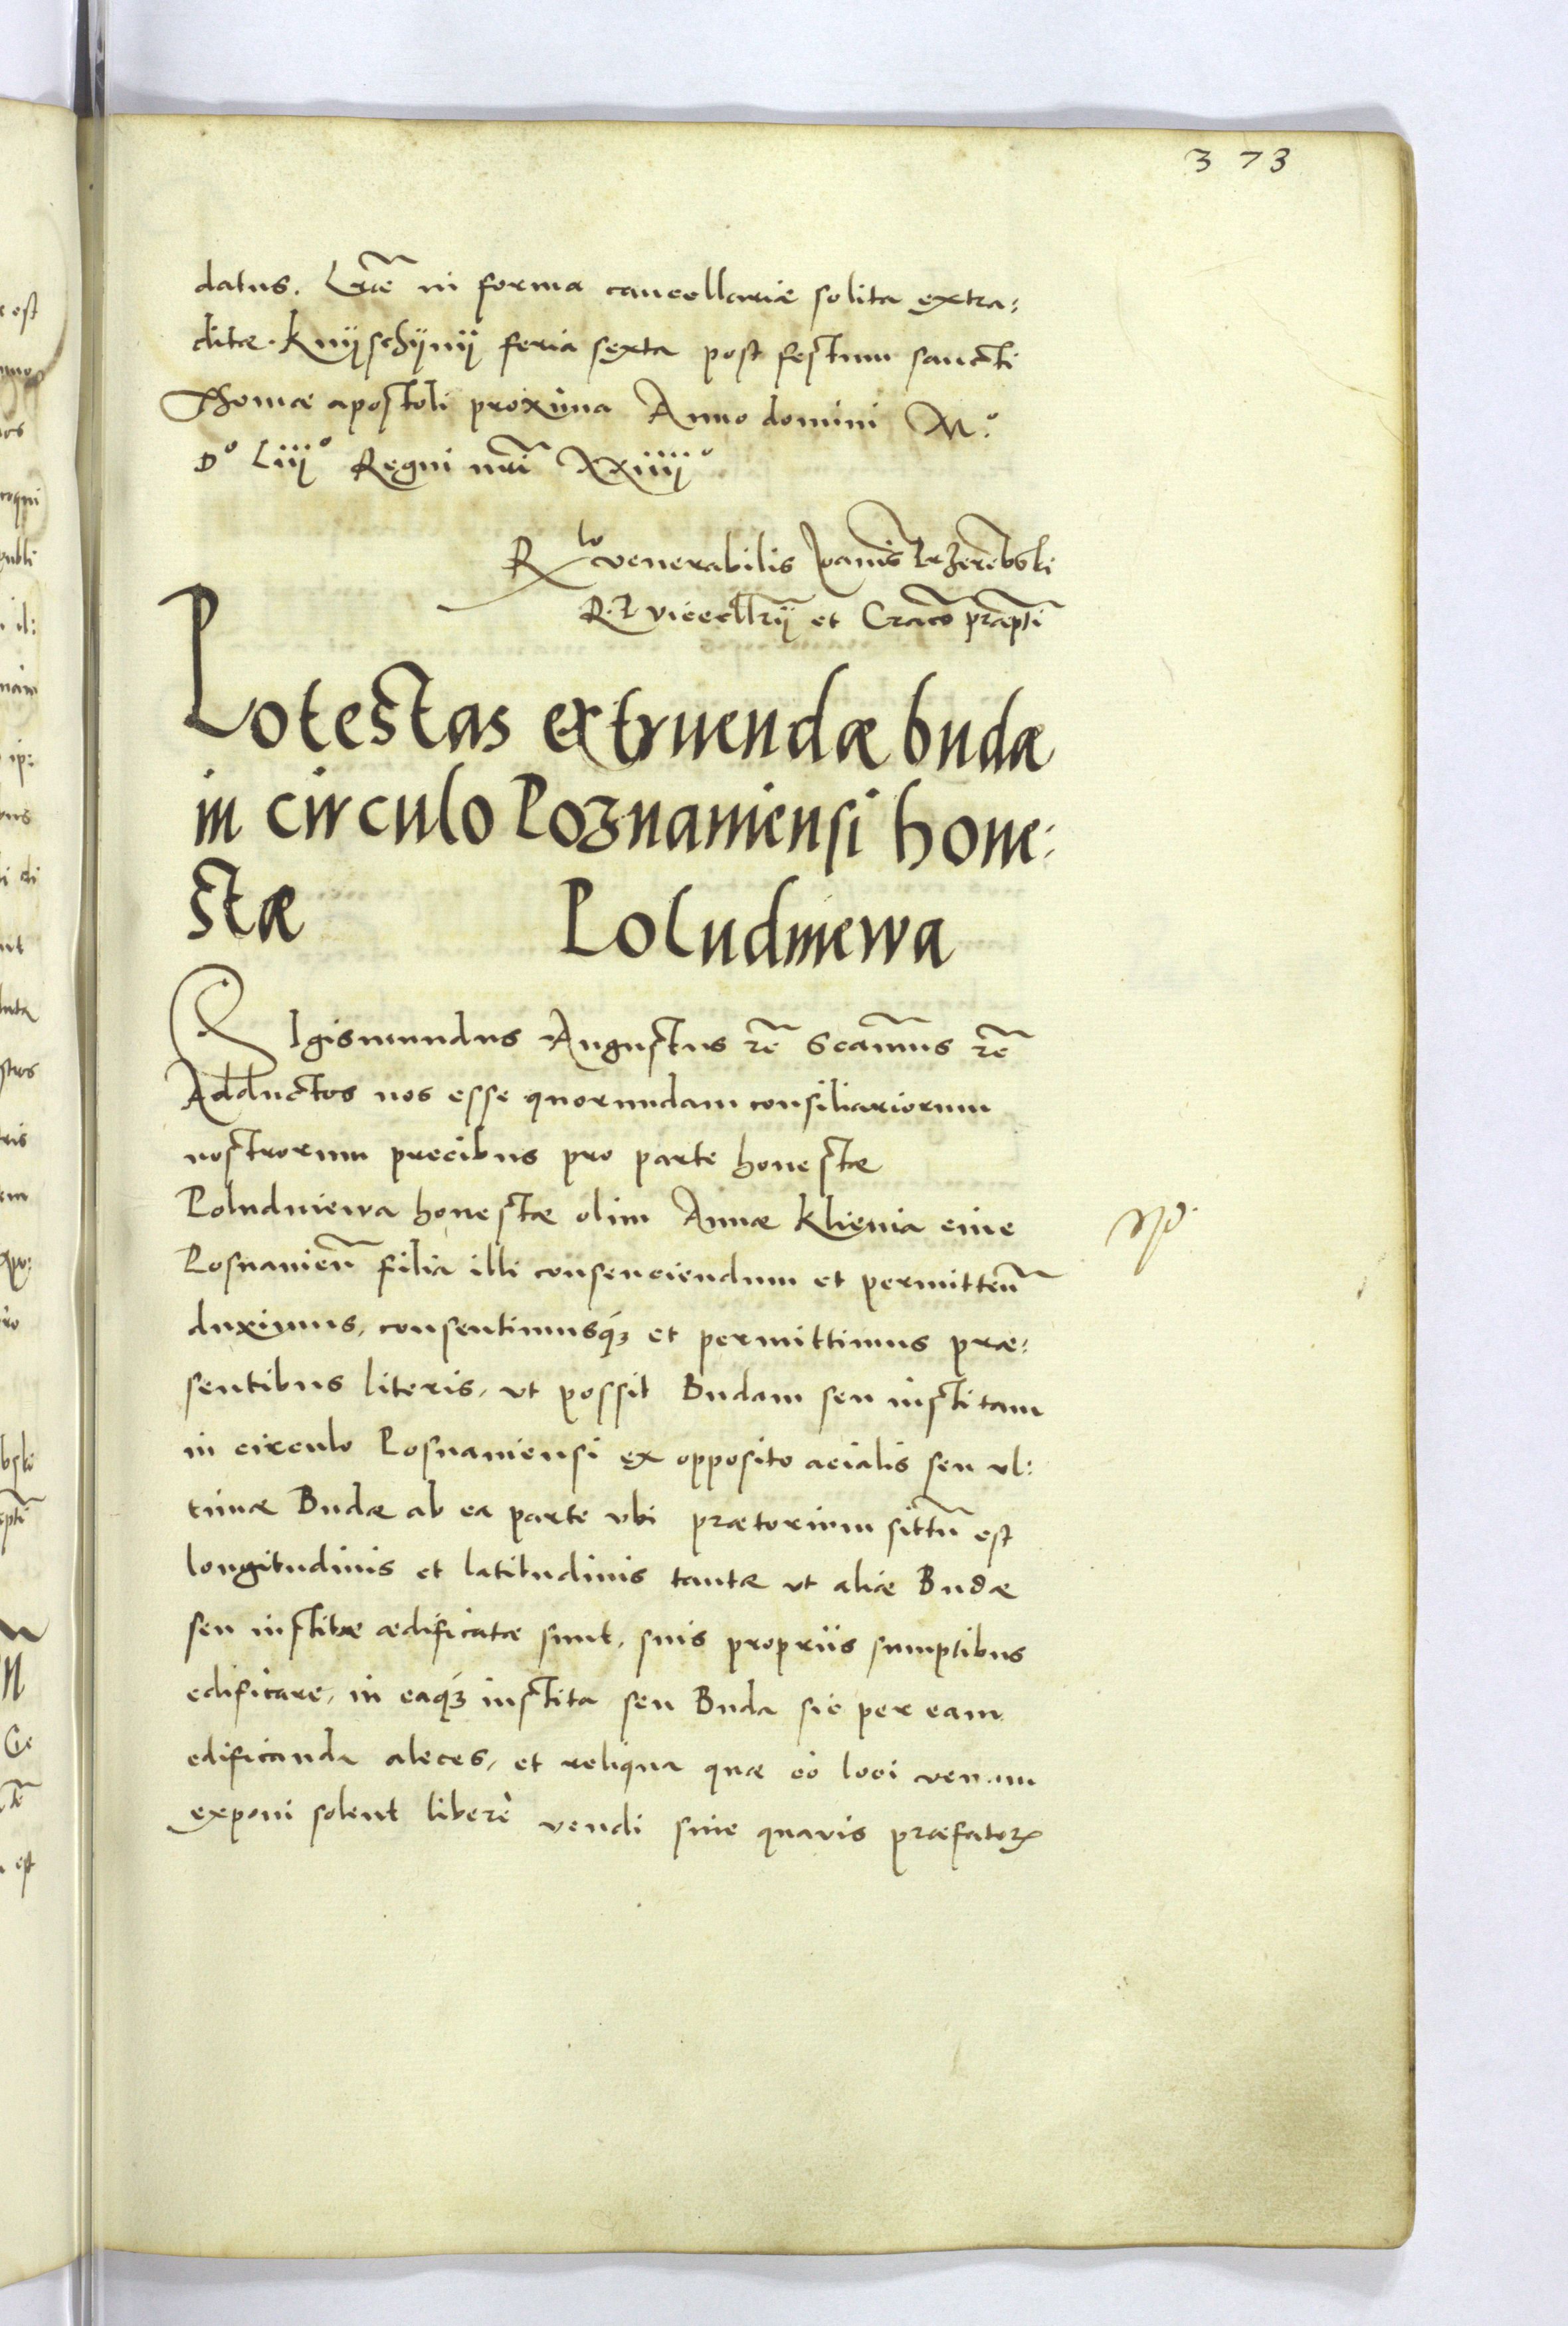 373
datus. Lr̃æ in forma cancellariæ solita extra:
ditæ. Knÿschÿnÿ feria sexta post festum sancti
Thomæ apostoli proxima Anno domini M.º
Dº Liijº Regni nr̃i XXiiijº
Rlo venerabilis Joanis Przerembski
R. P. vicecllrij et Craco præpti
Potestas extruendæ budæ
in circulo Poznaniensi hone:
stæ Poludniewa
Sigismundus Augustus rẽ Scamus rẽ
Adductos nos esse quorundam consiliariorum
nostrorum precibus pro parte honestæ
Poludniewa honestæ olim Annæ Khienia eiuie
Posnanien̄ filia illi consenciendum et permitten̄
duximus, consentimusq́ꝫ et permittimus præ:
sentibus literis, ut possit Budam seu institam
in circulo Posnaniensi ex opposito acialis seu ul:
timæ Budæ ab ea parte ubi prætorium sittũ est
longitudinis et latitudinis tantæ ut aliæ Budæ
seu institæ ædificatæ sunt, suis propriis sumptibus
edificare, in eaq́ꝫ instita seu Buda sic per eam
edificanda aleces, et reliqua quæ eò loci venum
exponi solent liberè vendi sine quavis præfatoꝝ